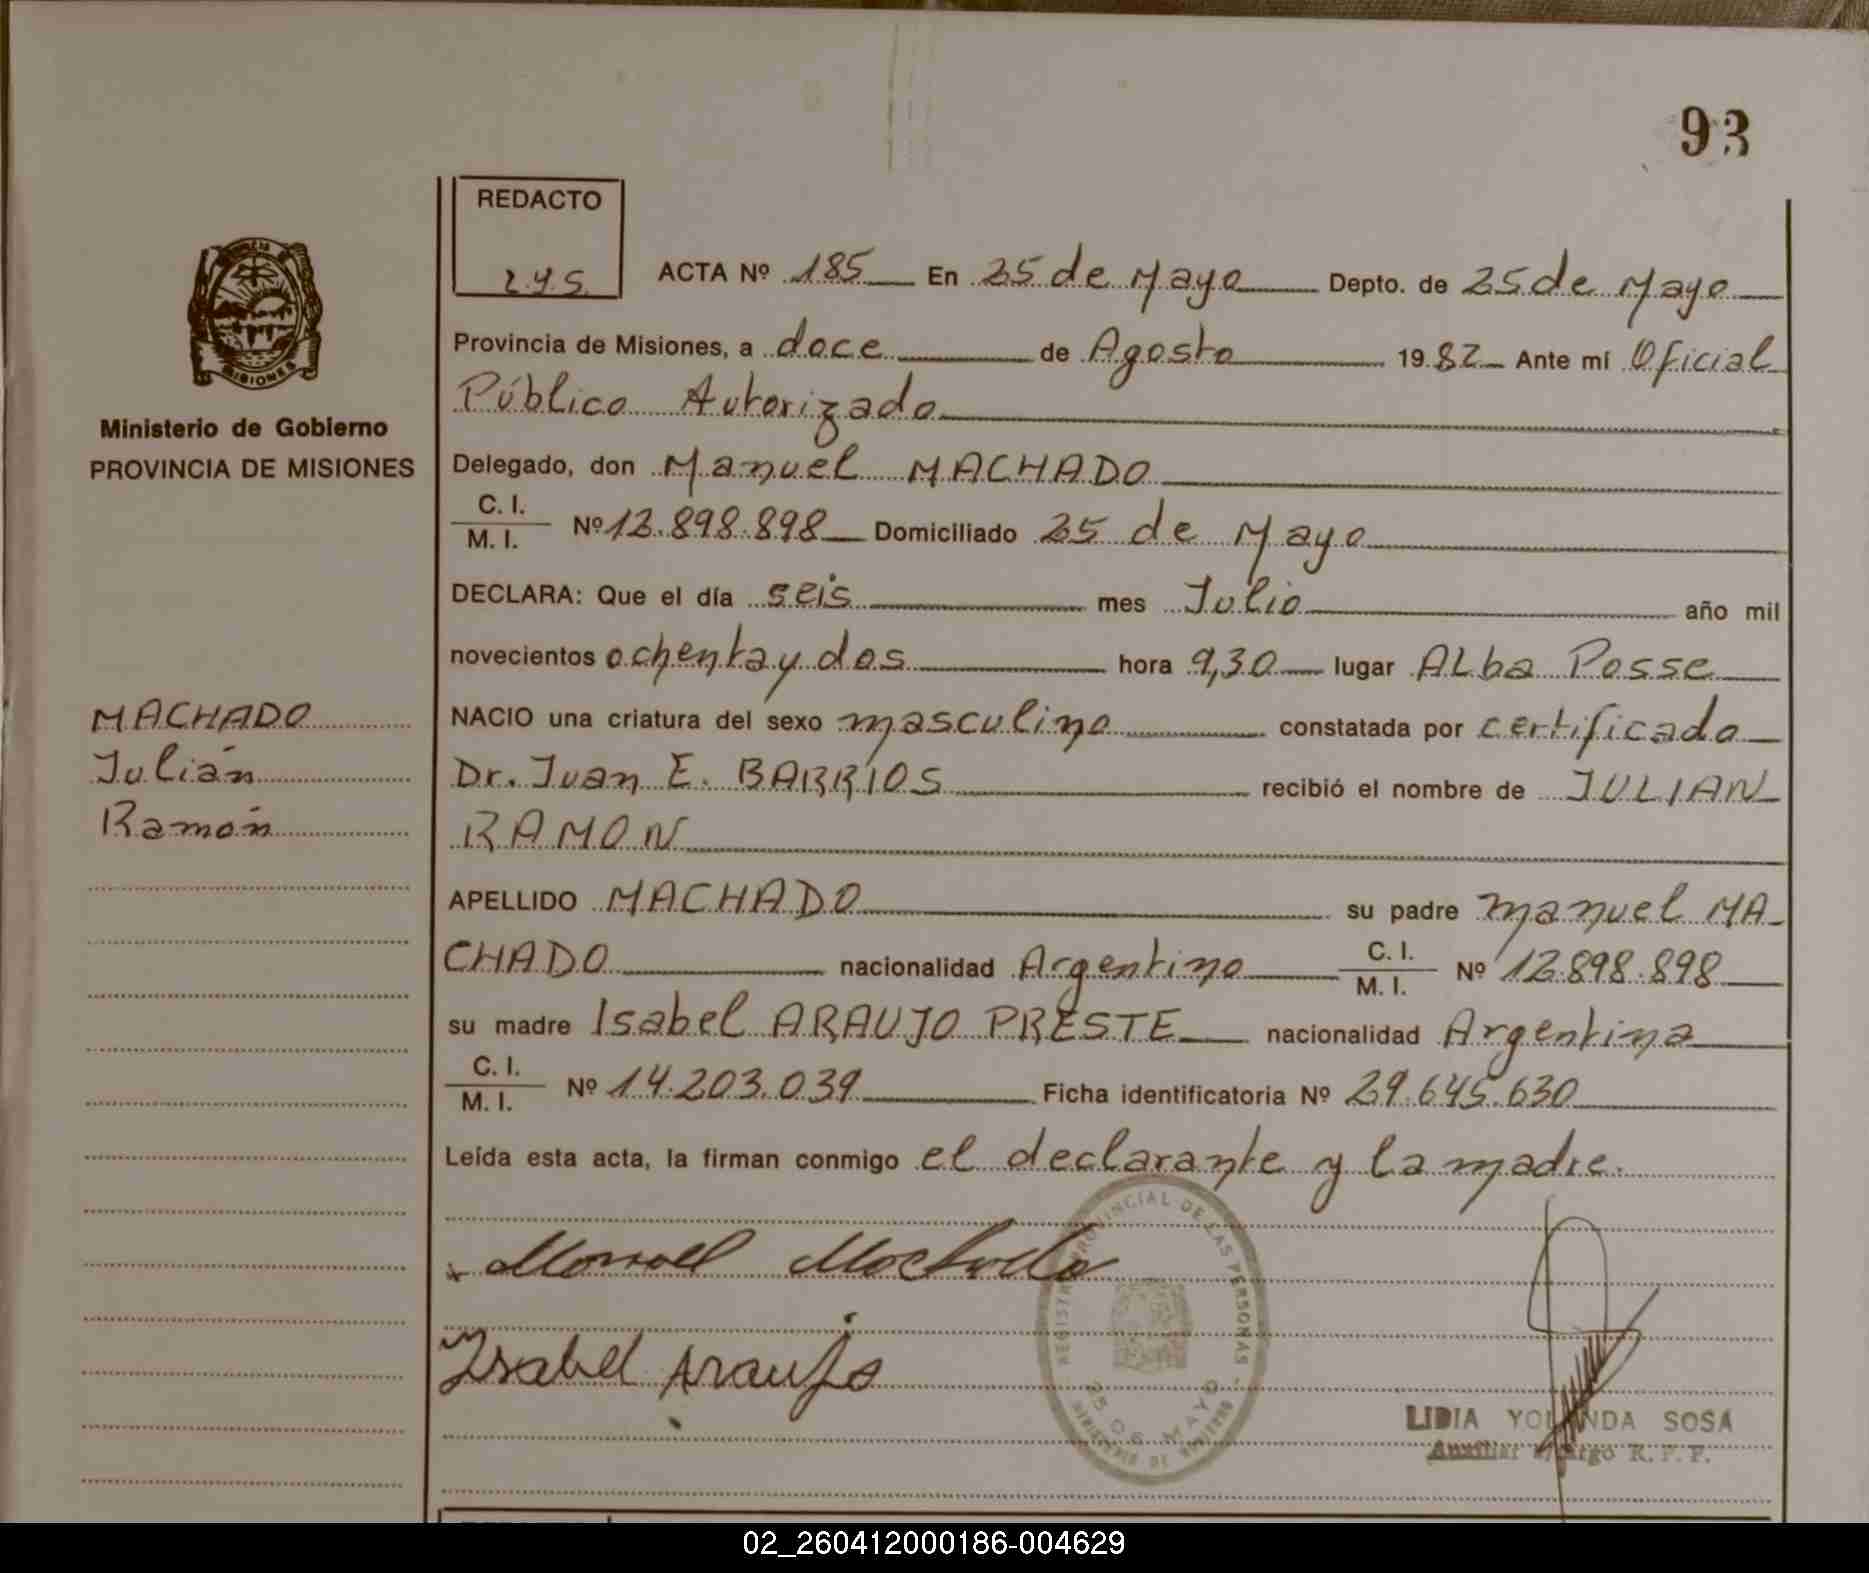 93
REDACTO
L.Y.S.
ACTA Nº 185 En 25 de Mayo Depto. de 25 de Mayo
Provincia de Misiones, a doce de Agosto 1982 Ante mí Oficial
Público Autorizado
Ministerio de Gobierno
PROVINCIA DE MISIONES
Delegado, don Manuel MACHADO
C. I.
M. I. Nº 12.898.898 Domiciliado 25 de Mayo
DECLARA: Que el día seis mes Julio año mil
novecientos ochenta y dos hora 9,30 lugar Alba Posse
MACHADO
Julián
Ramón
NACIO una criatura del sexo masculino constatada por certificado
Dr. Juan E. BARRIOS recibió el nombre de JULIAN
RAMON
APELLIDO MACHADO su padre Manuel MA-
CHADO nacionalidad Argentino C. I. M. I. Nº 12.898.898
su madre Isabel ARAUJO PRESTE nacionalidad Argentina
C. I.
M. I. Nº 14.203.039 Ficha identificatoria Nº 29.645.630
Leída esta acta, la firman conmigo el declarante y la madre.
Manuel Machado
Isabel Araujo
REGISTRO PROVINCIAL DE LAS PERSONAS
25 DE MAYO
MISIONES
LIDIA YOLANDA SOSA
Auxiliar R. P. P.
02_260412000186-004629